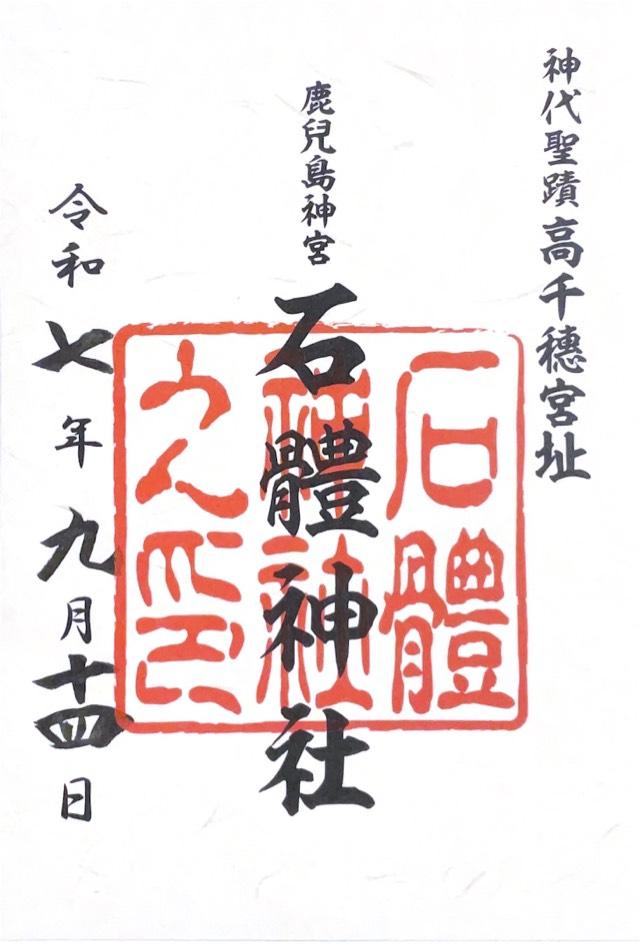 神代聖蹟高千穗宮址
鹿兒島神宮
石體神社
令和七年九月十四日
石體
神社
之印